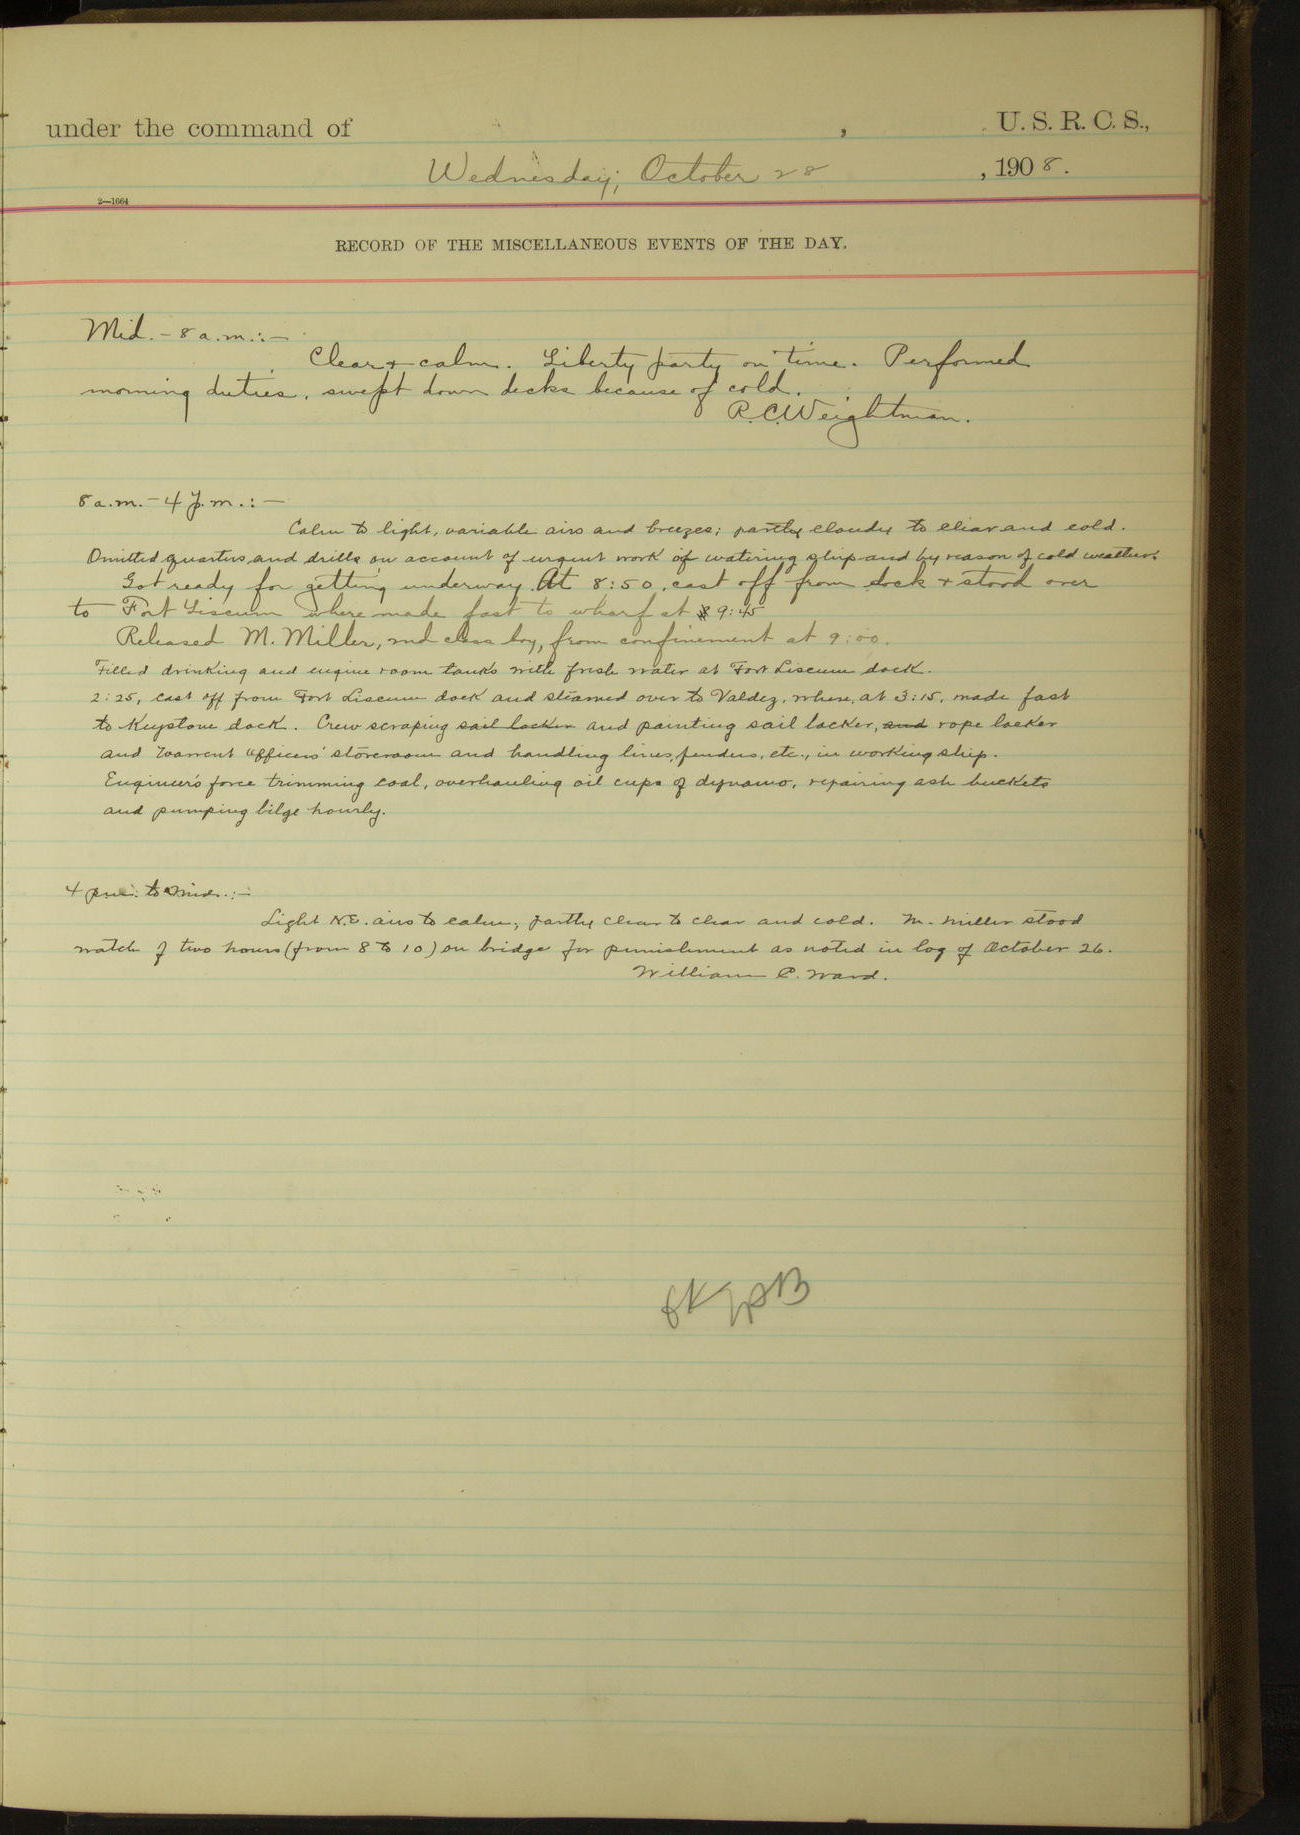 under the command of , U. S. R. C. S.,
Wednesday, October 28 , 1908.
2—1664
RECORD OF THE MISCELLANEOUS EVENTS OF THE DAY.
Mid. - 8 a.m.:-
Clear & calm. Liberty party on time. Performed
morning duties, swept down decks because of cold.
R. C. Weightman.
8 a.m. - 4 p.m.:-
Calm to light, variable airs and breezes; partly cloudy to clear and cold.
Omitted quarters and drills on account of urgent work of watering ship and by reason of cold weather.
Got ready for getting underway. At 8:50, cast off from dock & stood over
to Fort Liscum where made fast to wharf at 9:45
Released M. Miller, 2nd class boy, from confinement at 9:00.
Filled drinking and engine room tanks with fresh water at Fort Liscum dock.
2:25, cast off from Fort Liscum dock and steamed over to Valdez, where, at 3:15, made fast
to Keystone dock. Crew scraping sail locker and painting sail locker, and rope locker
and Warrent Officers' storeroom and handling lines, fenders, etc., in working ship.
Engineer's force trimming coal, overhauling oil cups of dynamo, repairing ash buckets
and pumping bilge hourly.
4 p.m. to mid.:-
Light N.E. airs to calm; partly clear to clear and cold. M. Miller stood
watch of two hours (from 8 to 10) on bridge for punishment as noted in log of October 26.
William C. Ward.